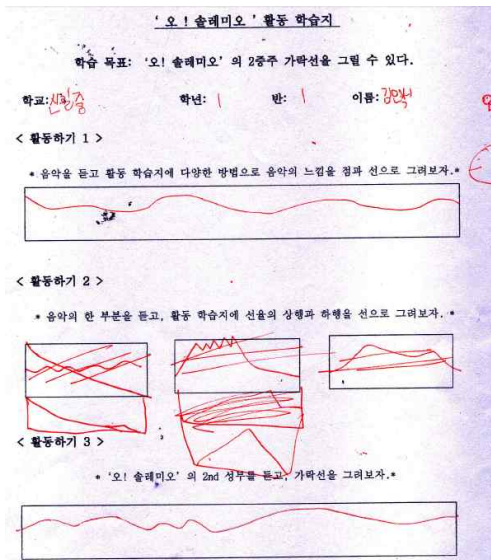 ' 오 ! 솔레미오 ' 활동 학습지
학습 목표: '오! 솔레미오' 의 2중주 가락선을 그릴 수 있다.
학교: 신길중 학년: 1 반: 1 이름:
< 활동하기 1 >
* 음악을 듣고 활동 학습지에 다양한 방법으로 음악의 느낌을 점과 선으로 그려보자.*
< 활동하기 2 >
* 음악의 한 부분을 듣고, 활동 학습지에 선율의 상행과 하행을 선으로 그려보자. *
< 활동하기 3 >
* '오! 솔레미오' 의 2nd 성부를 듣고, 가락선을 그려보자.*